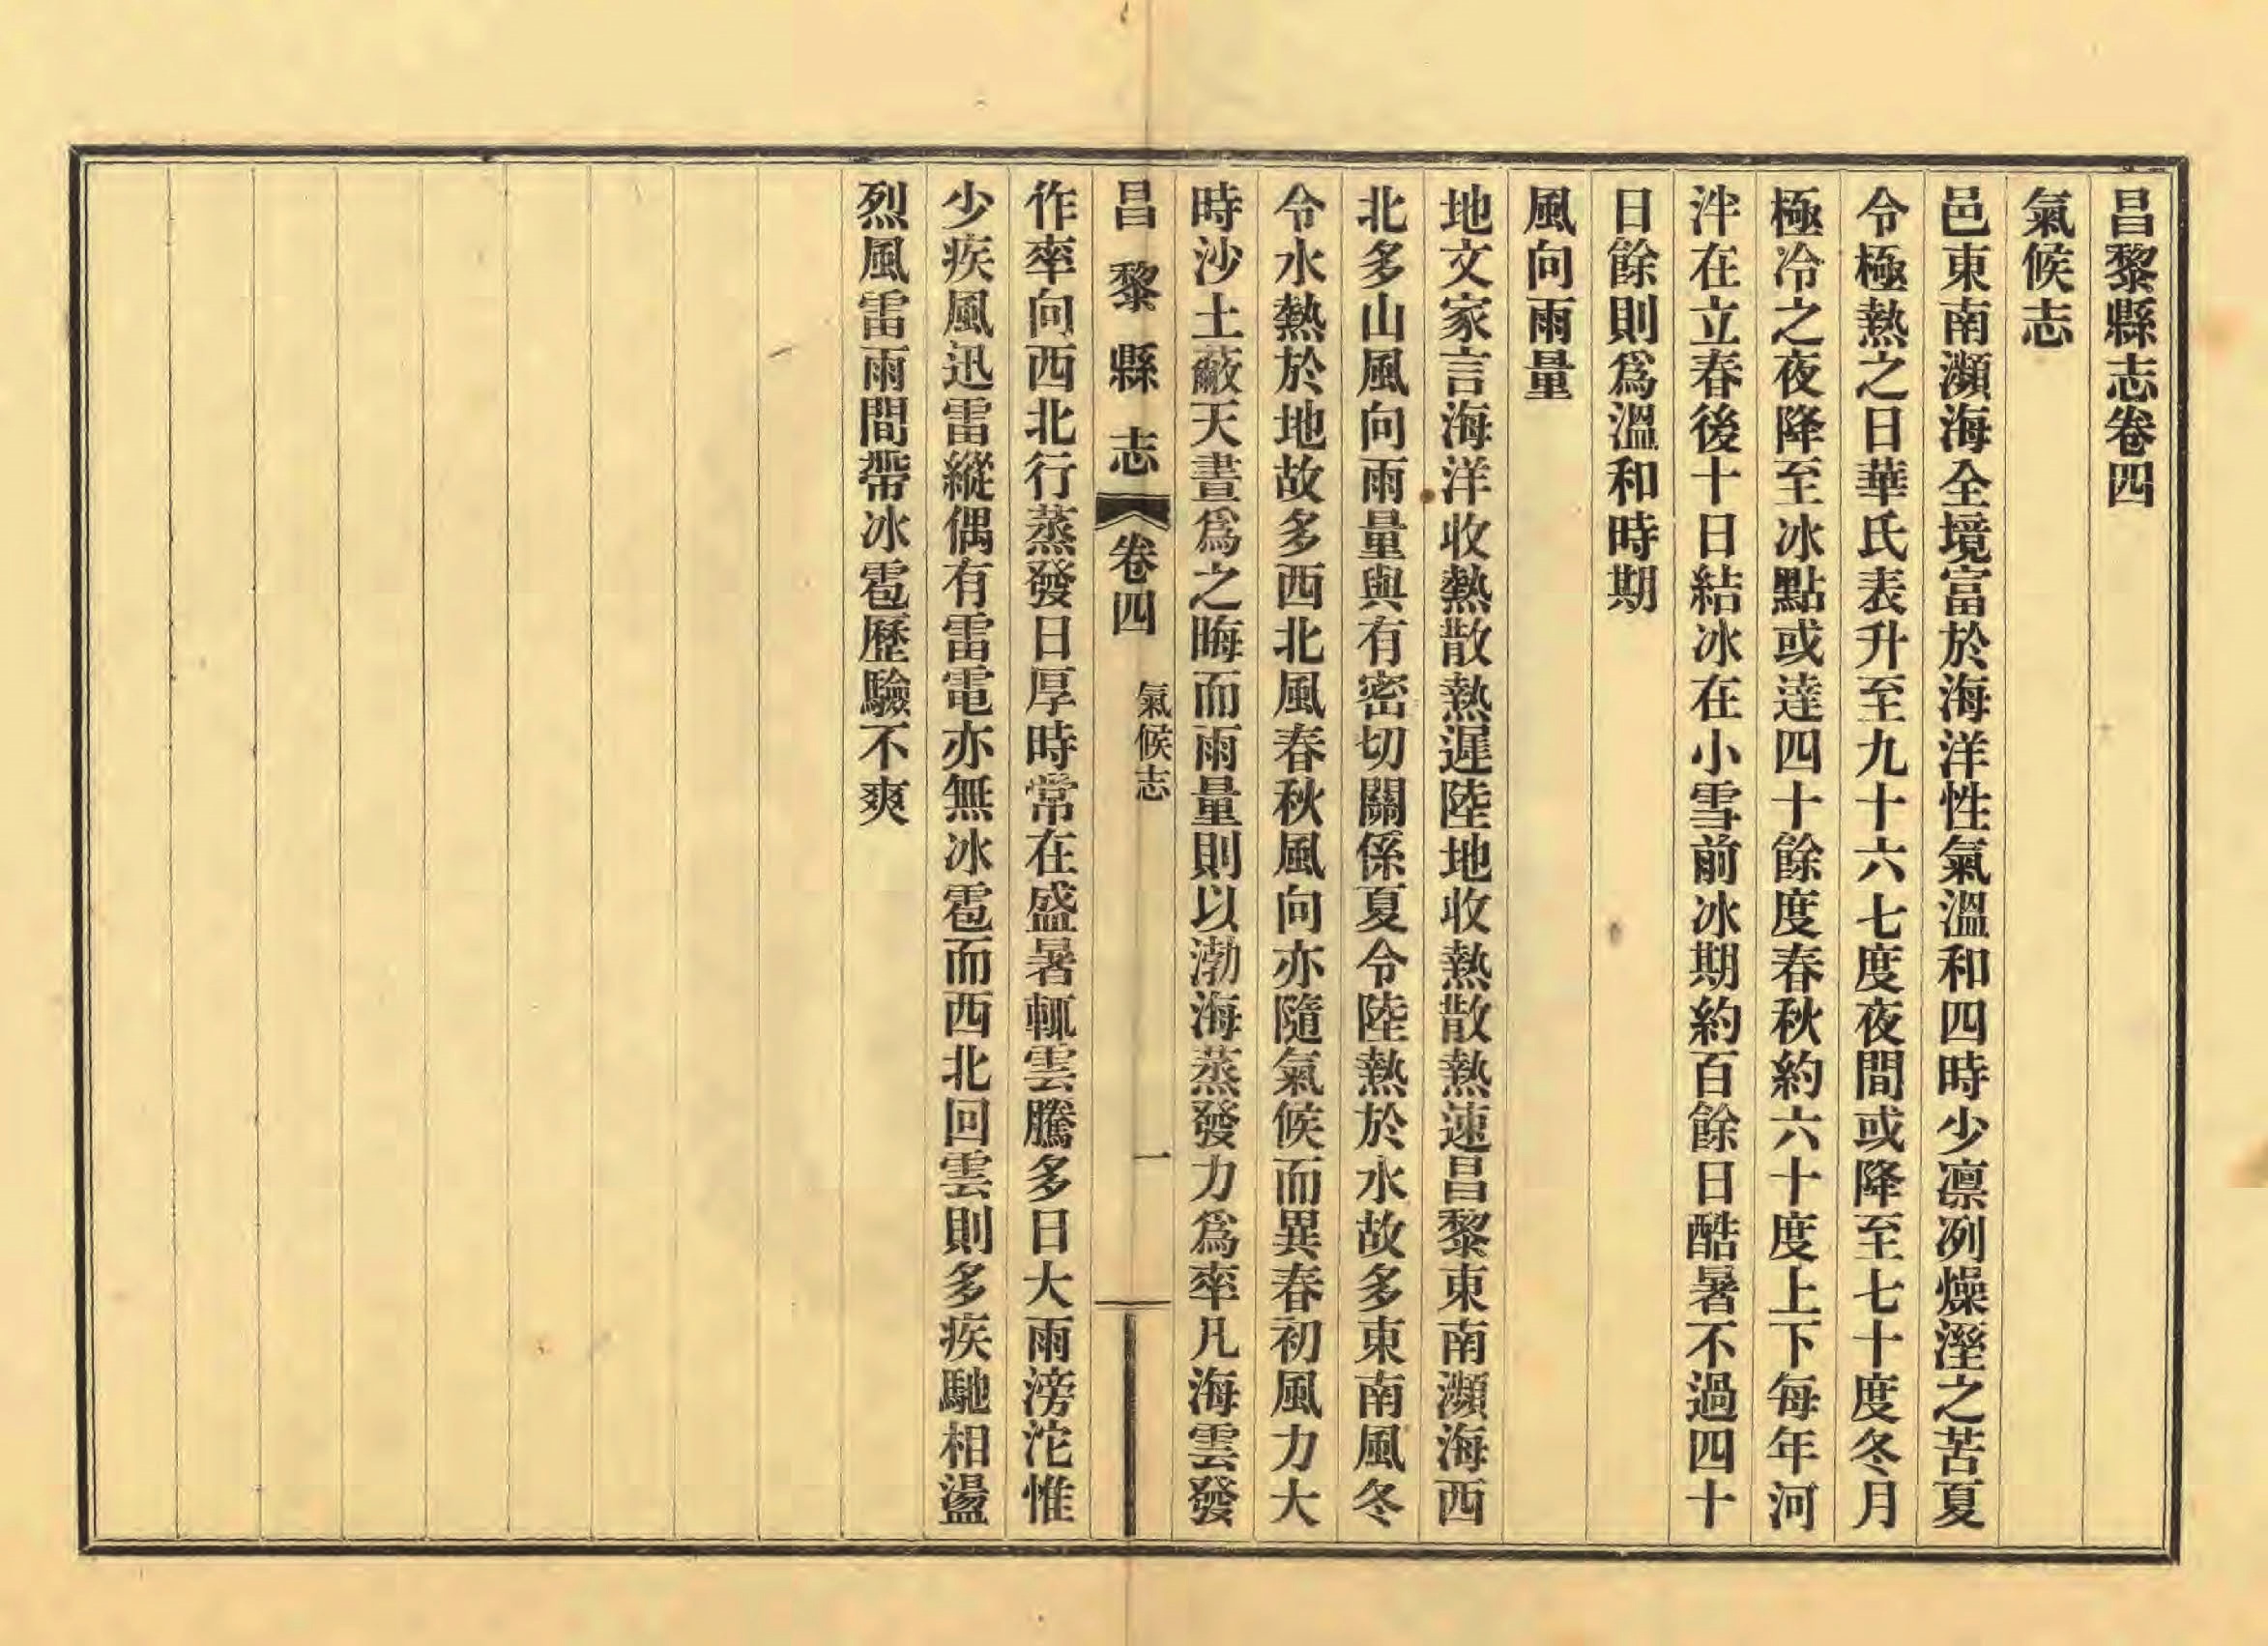 昌黎縣志卷四
氣候志
邑東南瀕海全境富於海洋性氣溫和四時少凛冽燥溼之苦夏
令極熱之日華氏表升至九十六七度夜間或降至七十度冬月
極冷之夜降至冰點或達四十餘度春秋約六十度上下每年河
泮在立春後十日結冰在小雪前冰期約百餘日酷暑不過四十
日餘則爲溫和時期
風向雨量
地文家言海洋收熱散熱遲陸地收熱散熱速昌黎東南瀕海西
北多山風向雨量與有密切關係夏令陸熱於水故多東南風冬
令水熱於地故多西北風春秋風向亦隨氣候而異春初風力大
時沙土蔽天晝爲之晦而雨量則以渤海蒸發力爲率凡海雲發
昌黎縣志 卷四 氣候志 一
作率向西北行蒸發日厚時常在盛暑輒雲騰多日大雨滂沱惟
少疾風迅雷縱偶有雷電亦無冰雹而西北回雲則多疾馳相盪
烈風雷雨間帶冰雹歷驗不爽